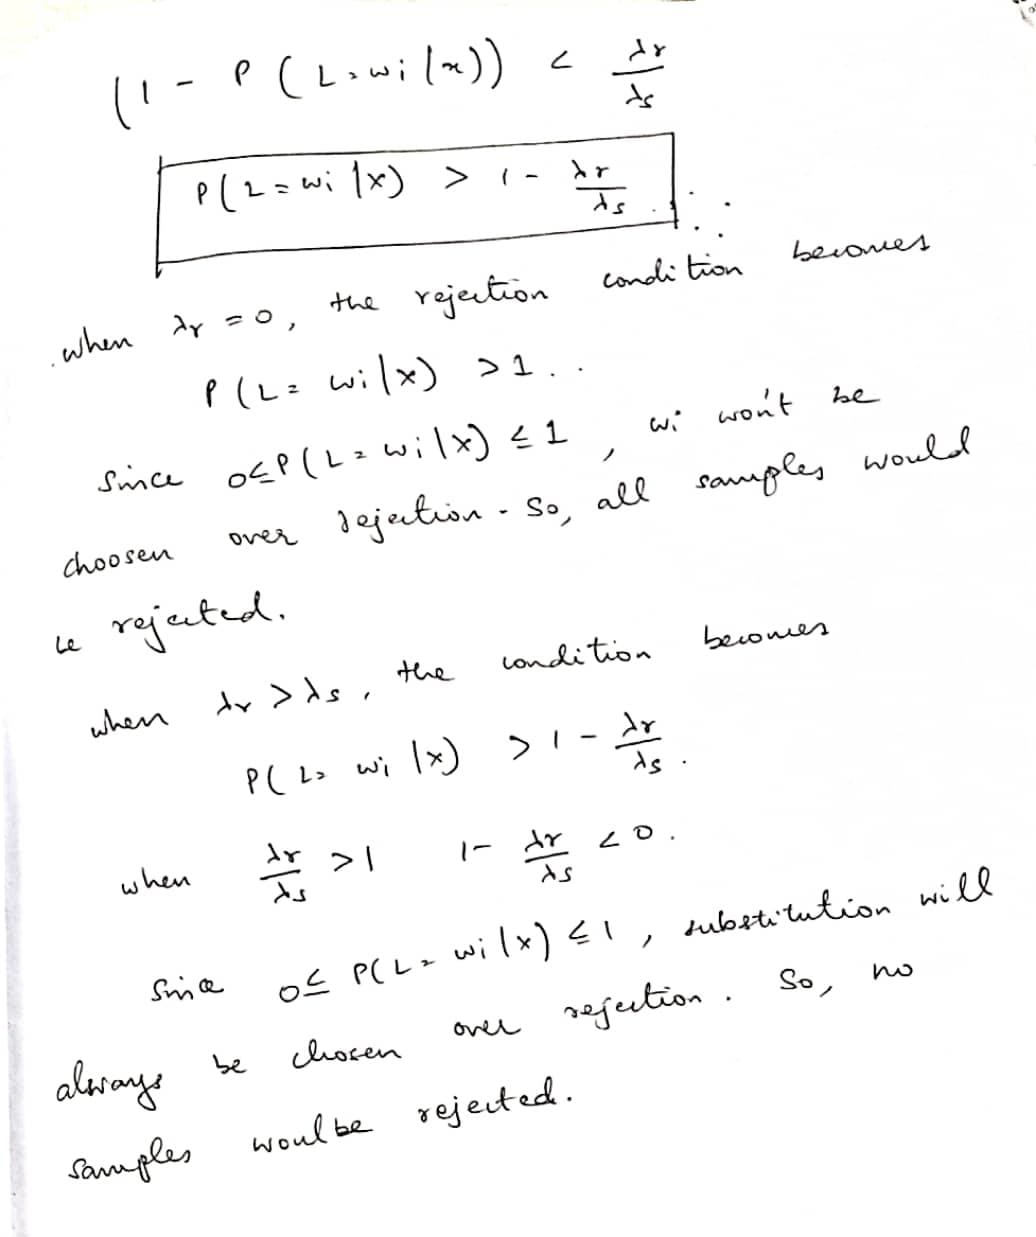 (1 - P(L=wi|x)) < λr/λs
P(L=wi|x) > 1 - λr/λs .
when λr = 0, the rejection condition becomes
P(L= wi|x) > 1 . .
Since 0≤P(L=wi|x) ≤ 1 , wi won't be
choosen over rejection. So, all samples would
be rejected.
when λr > λs , the condition becomes
P(L= wi |x) > 1 - λr/λs .
when λr/λs > 1 1 - λr/λs < 0 .
Since 0≤ P(L= wi|x) ≤ 1 , substitution will
always be chosen over rejection . So, no
samples woul be rejected.